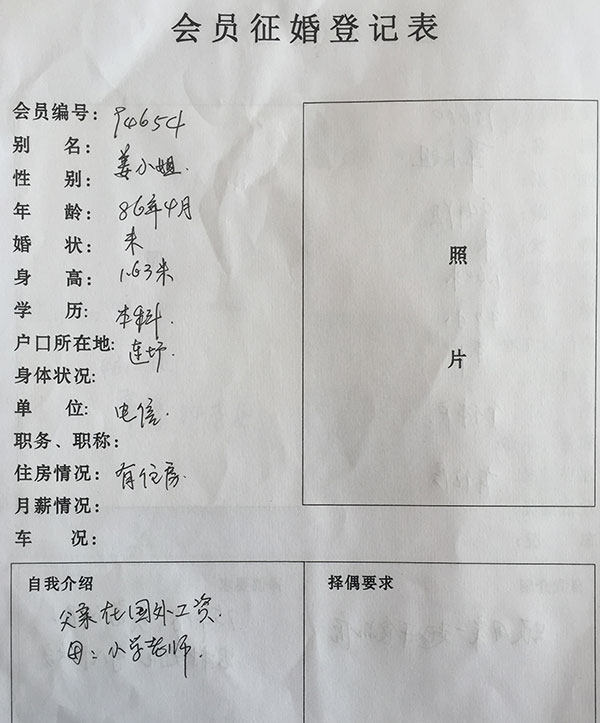 会员征婚登记表
会员编号：94654
别 名：姜小姐.
性 别：
年 龄：86年4月
婚 状：未
身 高：1.63米
学 历：本科.
户口所在地：连圩.
身体状况：
单 位：电信.
职务、职称：
住房情况：有住房.
月薪情况：
车 况：
照
片
自我介绍
父亲在国外工资.
母：小学老师.
择偶要求